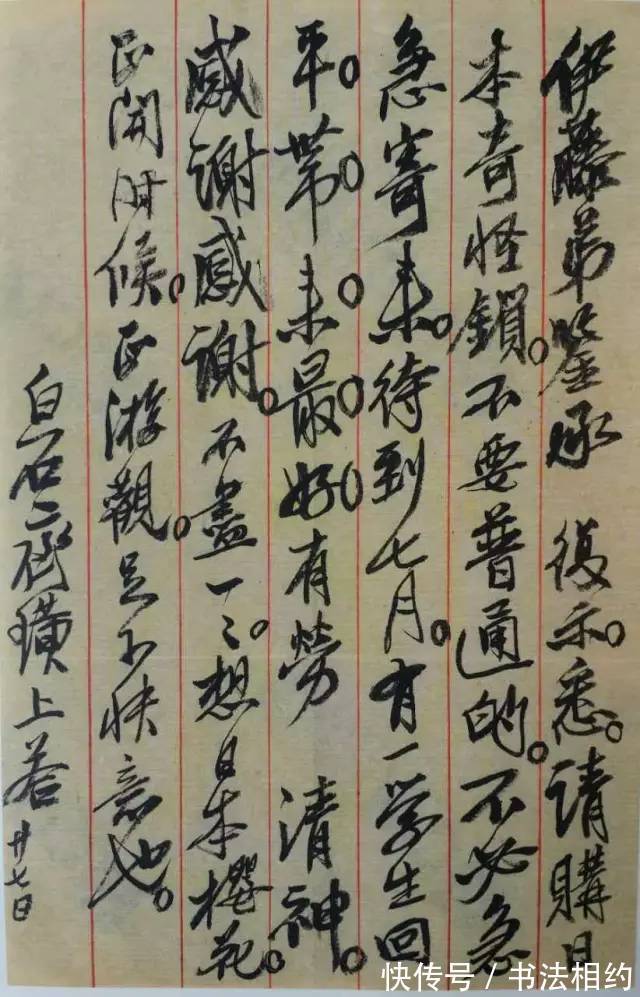 伊藤弟鉴承　复示。悉。请購日
本奇怪鎖。不要普通的。不必急
急寄来。待到七月。有一学生回
平。带来。最好。有勞　清神。
感謝感謝。不盡一々。想日本櫻花
正開时候。正游觀。足下快意也。
白石齊璜上荅 廿七日
快传号／书法相约